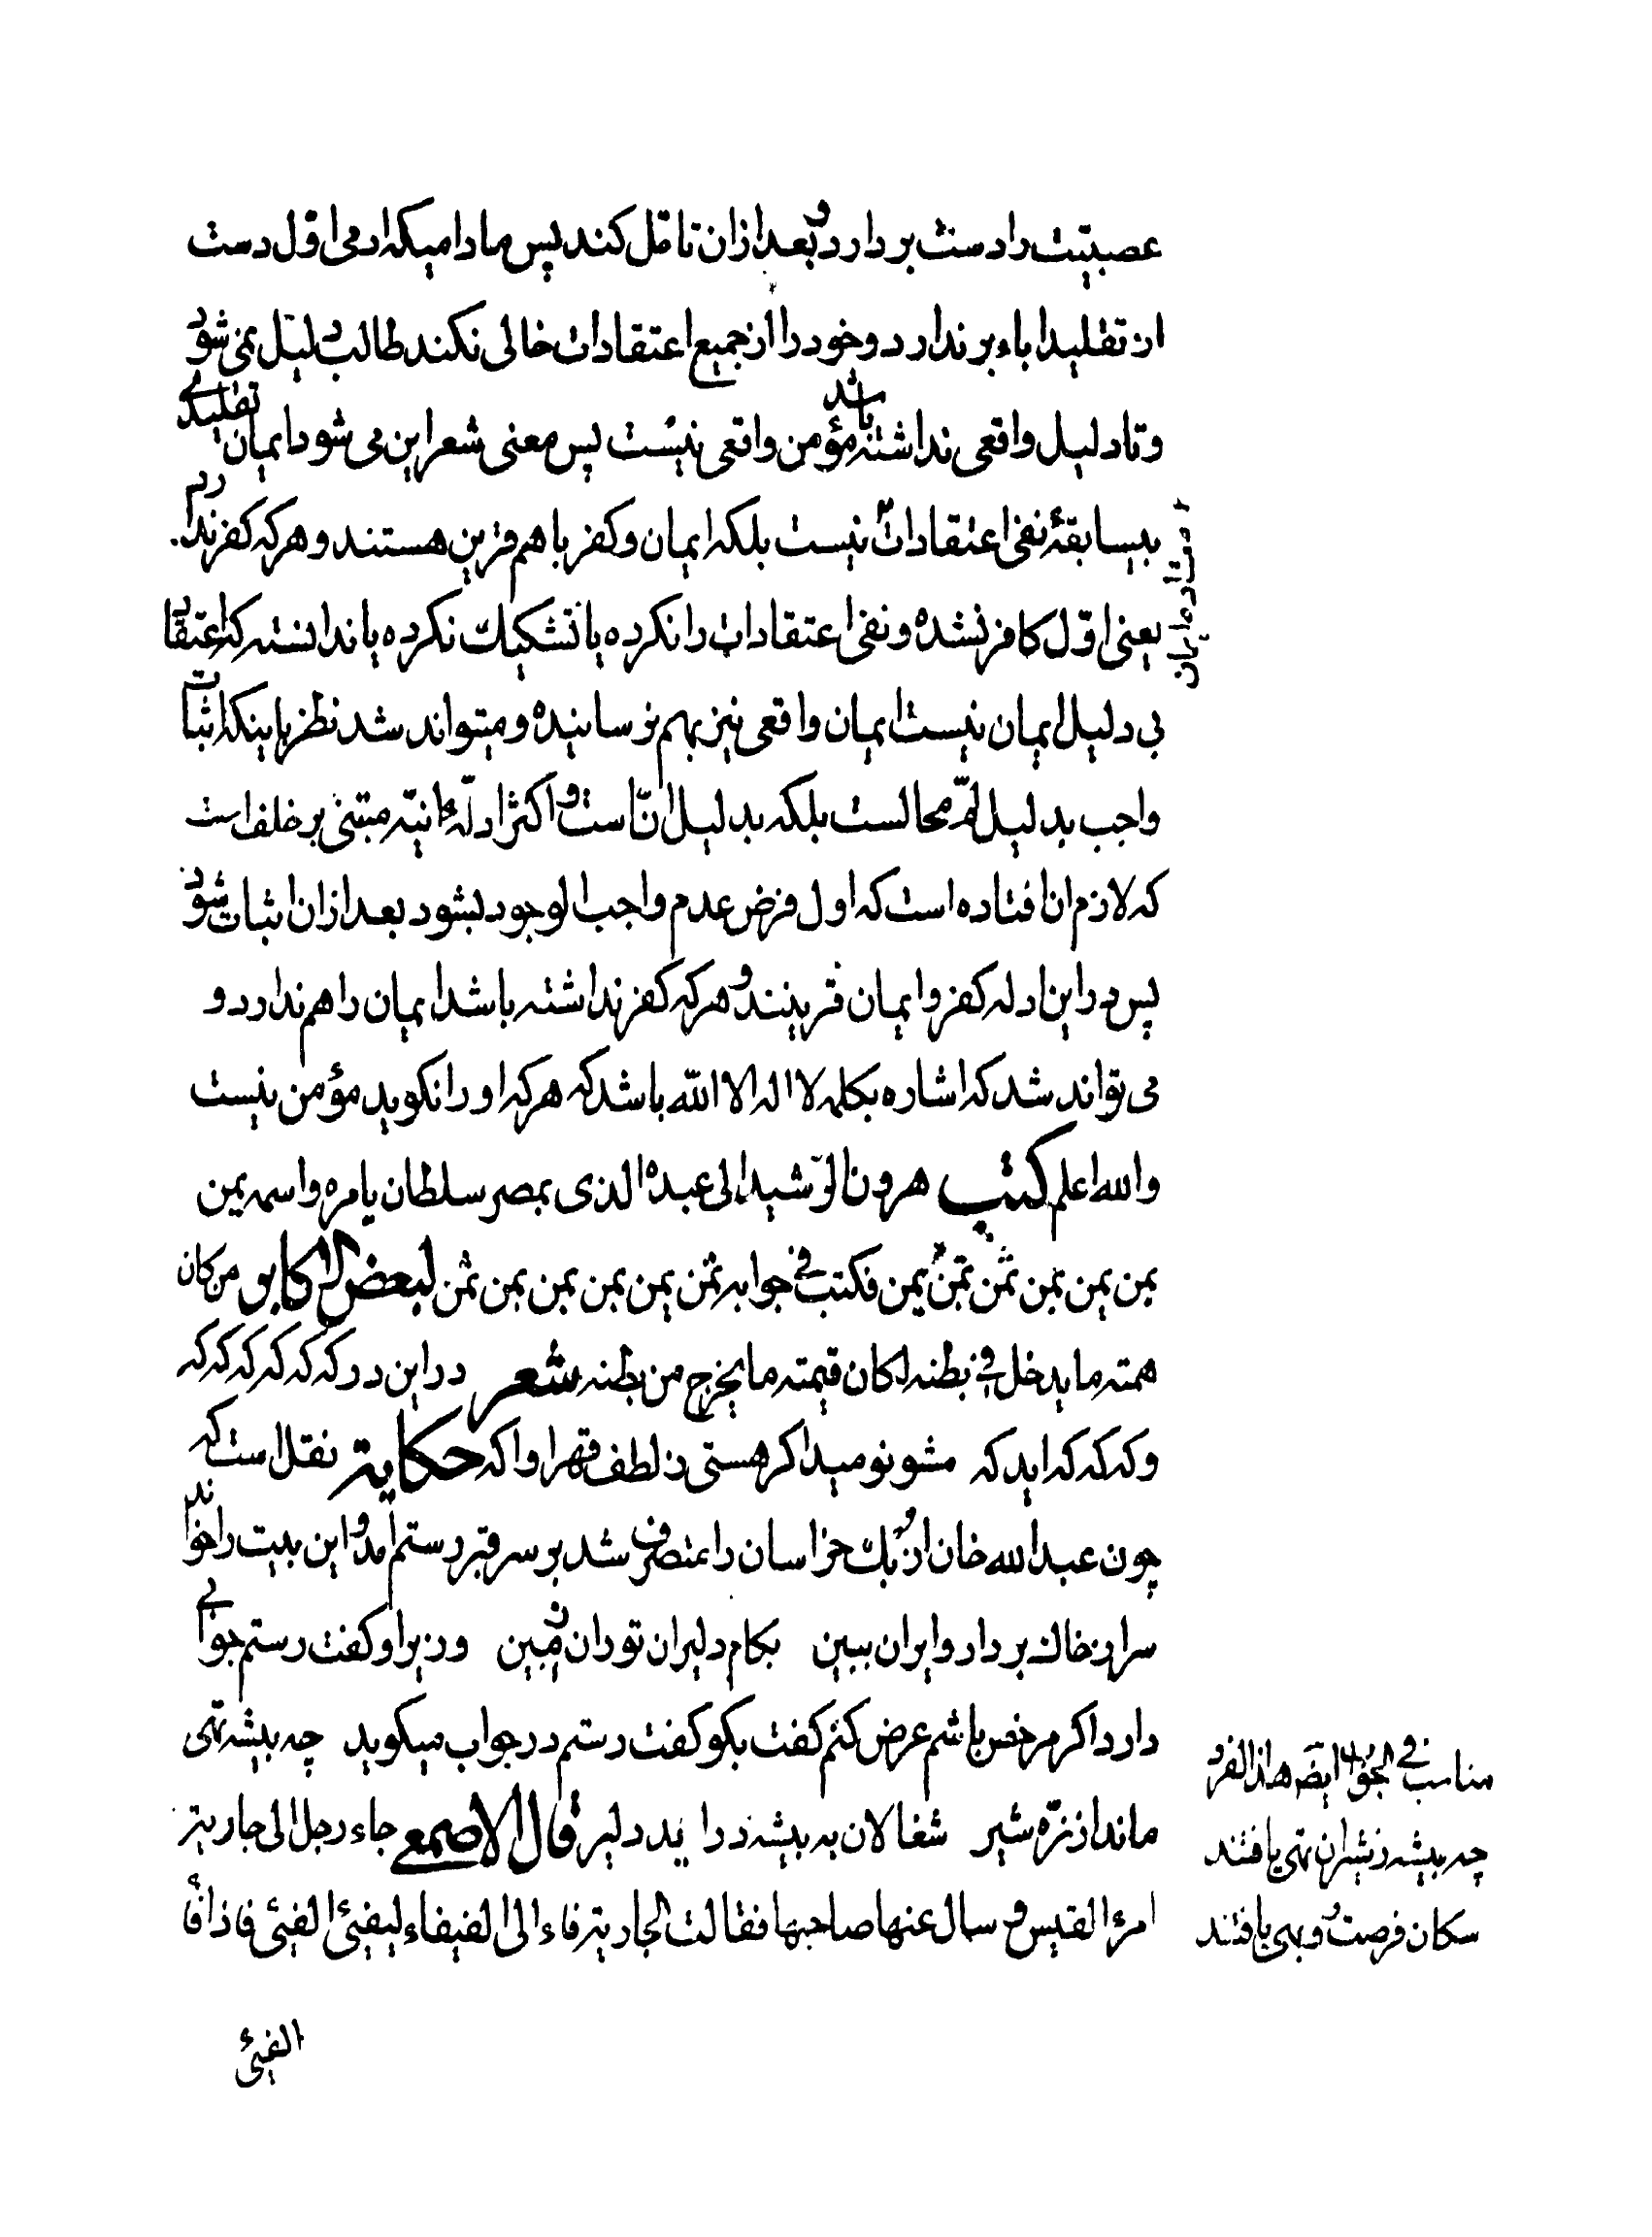 عصبیت را دست بردارد و بعد از ان تامّل کند پس مادامیکه ادمی اوّل دست
از تقلید اباء برندارد و خود را از جمیع اعتقادات خالی نکند طالب دلیل نمی شود
و تا دلیل واقعی نداشته باشد مؤمن واقعی نیست پس معنی شعر این می شود ایمان تقلیدی
بیسابقهٔ نفی اعتقادات نیست بلکه ایمان و کفر با هم قرین هستند و هر که کفر ندارد
یعنی اوّل کافر نشده و نفی اعتقادات را نکرده یا تشکیک نکرده یا ندانسته که اعتقاد
بی دلیل ایمان نیست ایمان واقعی نیز بهم نرسانیده و میتواند شد نظر باینکه اثبات
واجب بدلیل لمّ محالست بلکه بدلیل انّ است و اکثر ادلّهٔ انیّه مبتنی بر خلف است
که لازم ان افتاده است که اول فرض عدم واجب الوجود بشود بعد از ان اثبات شود
پس در این ادله کفر و ایمان قرینند و هر که کفر نداشته باشد ایمان را هم ندارد و
می تواند شد که اشاره بکلمه لا اله الا الله باشد که هر که او را نکوید مؤمن نیست
والله اعلم کتب هرون الرّشید الی عبده الذی بمصر سلطان یامره و اسمه یمن
یمن یمن یمن ثمن تمن یمن فکتب فی جوابه ثمن یمن یمن یمن یمن ثمن لبعض الاکابر من کان
همته ما یدخل فی بطنه لکان قیمته ما یخرج من بطنه شعر در این در که که که که که که
و که که که اید که مشو نومید اکر هستی ز لطف قهر او اکه حکایة نقل است که
چون عبدالله خان ازبک خراسان را متصرف شد بر سر قبر رستم آمد و این بیت را خواند
سر از خاک بردار و ایران ببین بکام دلیران توران زمین وزیر او کفت رستم جوابی
دارد اکر مرخص باشم عرض کنم کفت بکو کفت رستم در جواب میکوید چه بیشه تهی
ماند از نرّه شیر شغالان به بیشه در ایند دلیر قال الاصمعی جاء رجل الی جاریة
امرؤ القیس و سال عنها صاحبها فقالت الجاریة فاء الی الفیفاء لیفیئ الفیئ فاذا فاء
الفیئ
امتزاد ما ایمان
مناسب فی ایضه هذا الفرد
چه بیشه ز شیران تهی یافتند
سکان فرصت و بهی یافتند